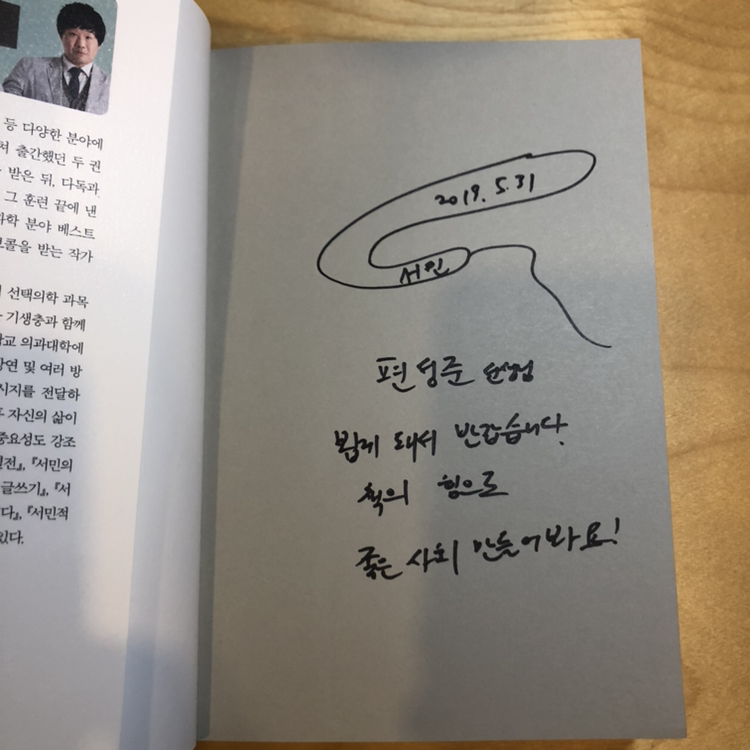 등 다양한 분야에
출간했던 두 권
받은 뒤, 다독과
그 훈련 끝에 낸
분야 베스트
받는 작가
선택의학 과목
기생충과 함께
의과대학에
강연 및 여러 방
전달하
자신의 삶이
중요성도 강조
『서민의
글쓰기』, 『서
『서민적
있다.
2019. 5. 31
서민
편성준 선생님
뵙게 돼서 반갑습니다.
책의 힘으로
좋은 사회 만들어봐요!